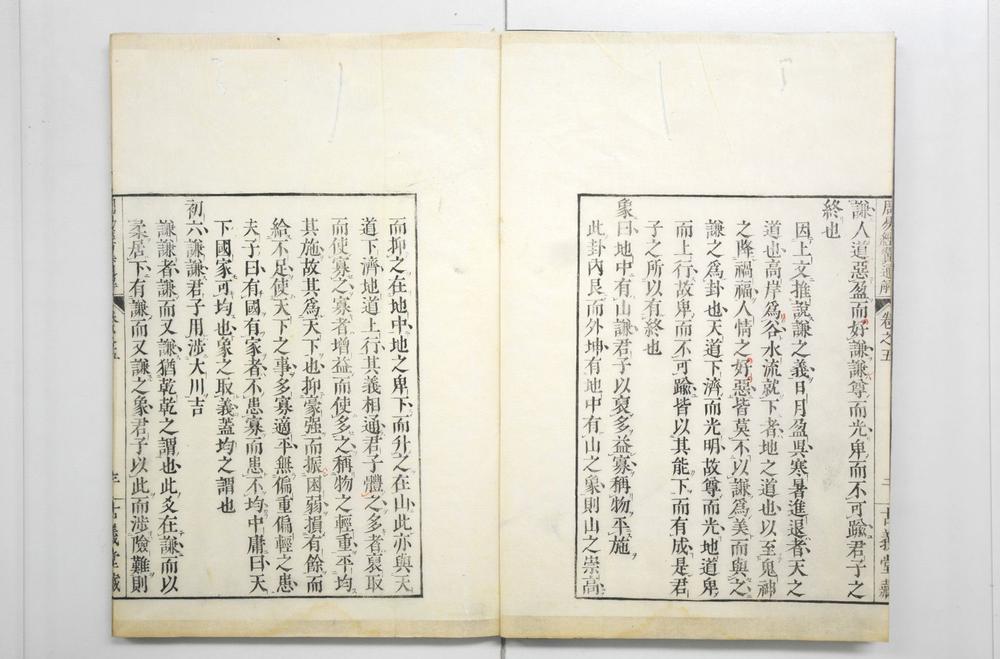 周易經翼通解 卷之五 二 古義堂藏
謙人道惡盈而好謙謙尊而光卑而不可踰君子之
終也
因上文推說謙之義日月盈昃寒暑進退者天之
道也高岸爲谷水流就下者地之道也以至鬼神
之降禍福人情之好惡皆莫不以謙爲美而與之
謙之爲卦也天道下濟而光明故尊而光地道卑
而上行故卑而不可踰皆以其能下而有成是君
子之所以有終也
象曰地中有山謙君子以裒多益寡稱物平施
此卦內艮而外坤有地中有山之象則山之崇高
而抑之在地中地之卑下而升之在山此亦與天
道下濟地道上行其義相通君子體之多者裒取
而使寡之寡者增益而使多之稱物之輕重平均
其施故其爲天下也抑豪强而振困弱損有餘而
給不足使天下之事多寡適平無偏重偏輕之患
夫子曰有國有家者不患寡而患不均中庸曰天
下國家可均也象之取義蓋均之謂也
初六謙謙君子用涉大川吉
謙謙者謙而又謙猶乾乾之謂也此爻在謙而以
柔居下有謙而又謙之象君子以此而涉險難則
古義堂藏